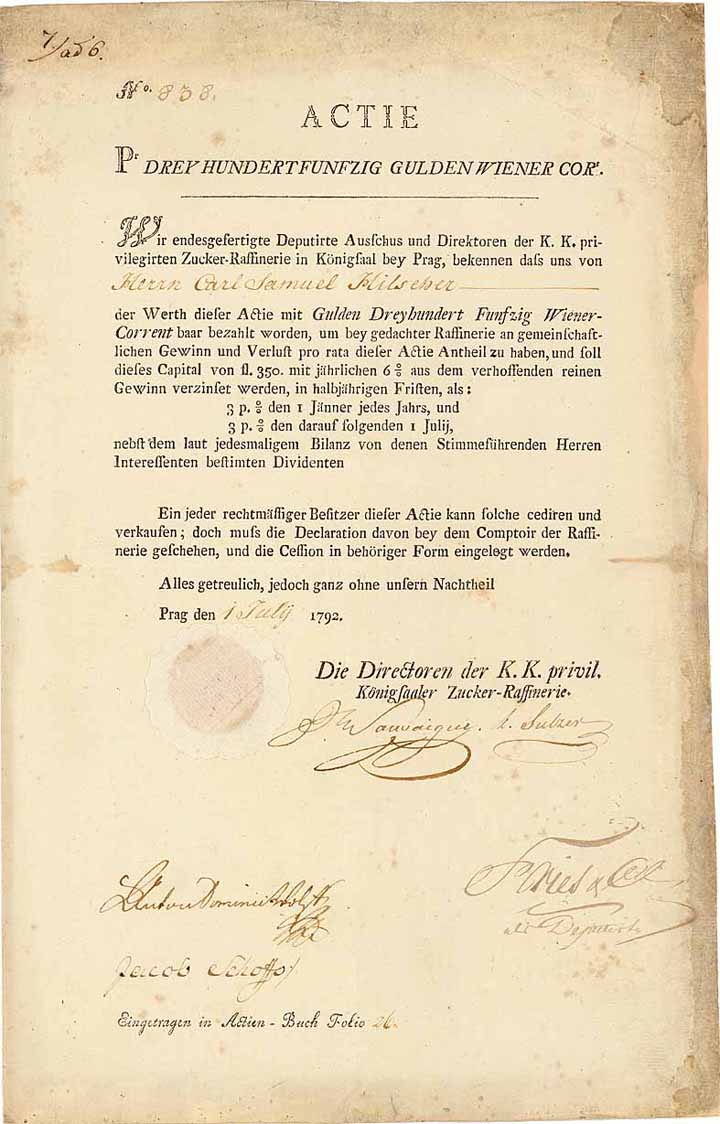 7/ad 6.
No. 838.
ACTIE
Pr DREYHUNDERTFUNFZIG GULDEN WIENER CORt.
Wir endesgefertigte Deputirte Ausſchus und Direktoren der K. K. pri-
vilegirten Zucker-Raffinerie in Königſaal bey Prag, bekennen daſs uns von
Herrn Carl Samuel Hilscher
der Werth dieſer Actie mit Gulden Dreyhundert Funfzig Wiener-
Corrent baar bezahlt worden, um bey gedachter Raffinerie an gemeinſchaft-
lichen Gewinn und Verluſt pro rata dieſer Actie Antheil zu haben, und ſoll
dieſes Capital von fl. 350. mit jährlichen 6 % aus dem verhoffenden reinen
Gewinn verzinſet werden, in halbjährigen Friſten, als:
3 p. % den 1 Jänner jedes Jahrs, und
3 p. % den darauf folgenden 1 Julij,
nebſt dem laut jedesmaligem Bilanz von denen Stimmeführenden Herren
Intereſſenten beſtimten Dividenten
Ein jeder rechtmäſſiger Beſitzer dieſer Actie kann ſolche cediren und
verkaufen; doch muſs die Declaration davon bey dem Comptoir der Raffi-
nerie geſchehen, und die Ceſſion in behöriger Form eingelegt werden.
Alles getreulich, jedoch ganz ohne unſern Nachtheil
Prag den 1 July 1792.
Die Directoren der K. K. privil.
Königſaaler Zucker-Raffinerie.
Sauvaigue. Sulzer
Fries & Co
als Deputirte
Anton Dominick
Jacob Schoffs
Eingetragen in Actien-Buch Folio 26.